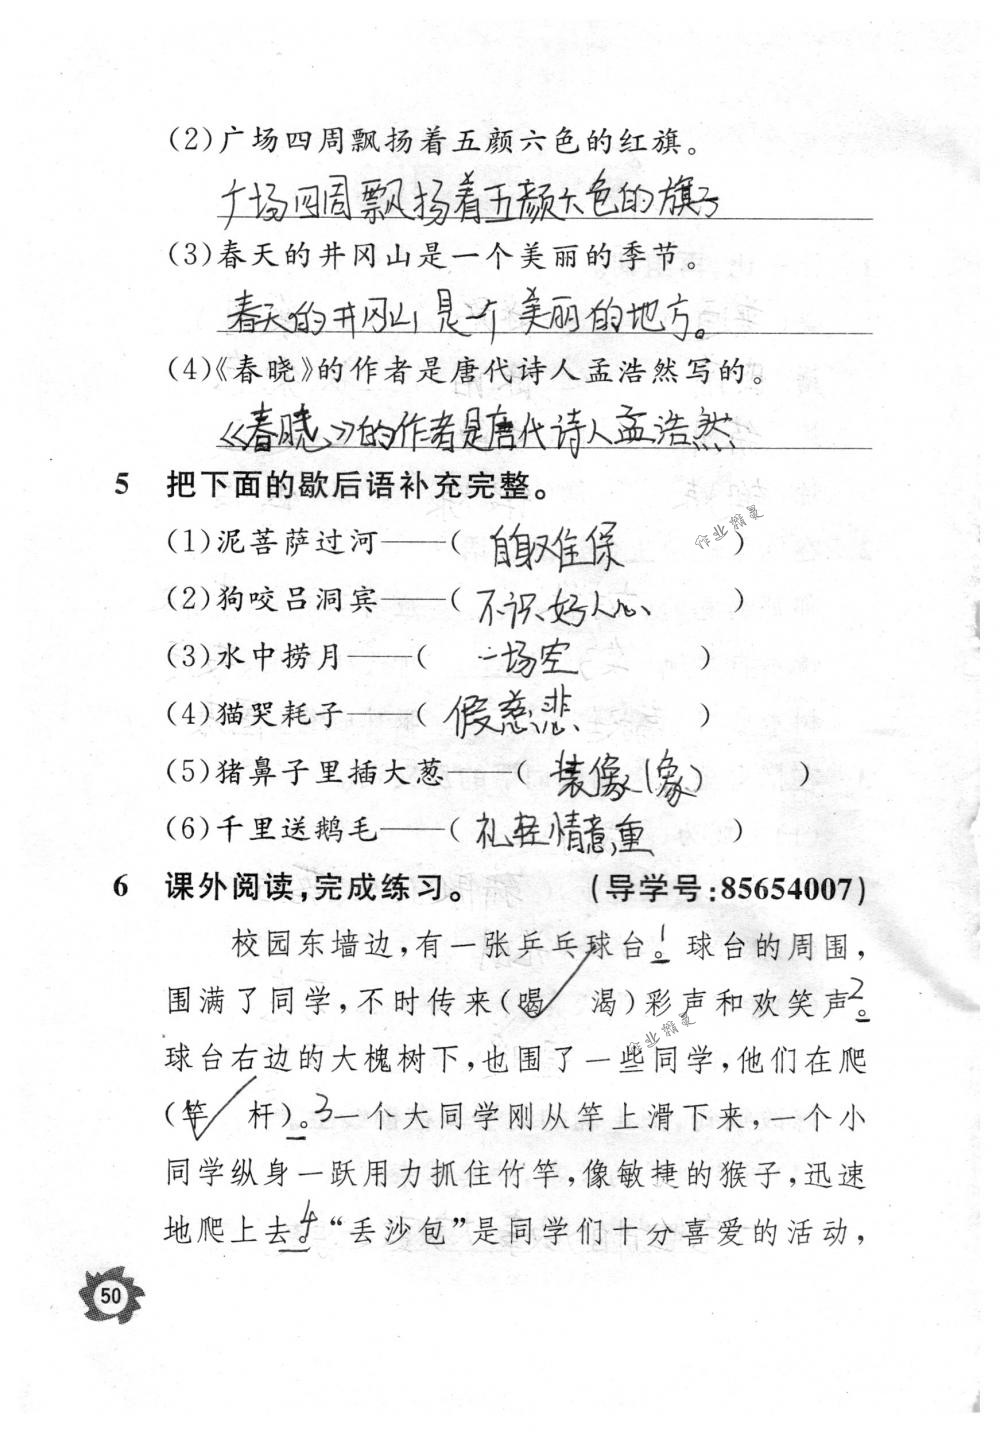 (2)广场四周飘扬着五颜六色的红旗。
广场四周飘扬着五颜六色的旗子
(3)春天的井冈山是一个美丽的季节。
春天的井冈山是一个美丽的地方。
(4)《春晓》的作者是唐代诗人孟浩然写的。
《春晓》的作者是唐代诗人孟浩然
5 把下面的歇后语补充完整。
(1)泥菩萨过河——( 自身难保 )
(2)狗咬吕洞宾——( 不识好人心 )
(3)水中捞月——( 一场空 )
(4)猫哭耗子——( 假慈悲 )
(5)猪鼻子里插大葱——( 装像(象) )
(6)千里送鹅毛——( 礼轻情意重 )
6 课外阅读,完成练习。 (导学号:85654007)
校园东墙边,有一张乒乓球台。1 球台的周围,
围满了同学,不时传来(喝✓ 渴)彩声和欢笑声。2
球台右边的大槐树下,也围了一些同学,他们在爬
(竿✓ 杆)。3 一个大同学刚从竿上滑下来,一个小
同学纵身一跃用力抓住竹竿,像敏捷的猴子,迅速
地爬上去。4 “丢沙包”是同学们十分喜爱的活动,
50
作业精灵
作业精灵